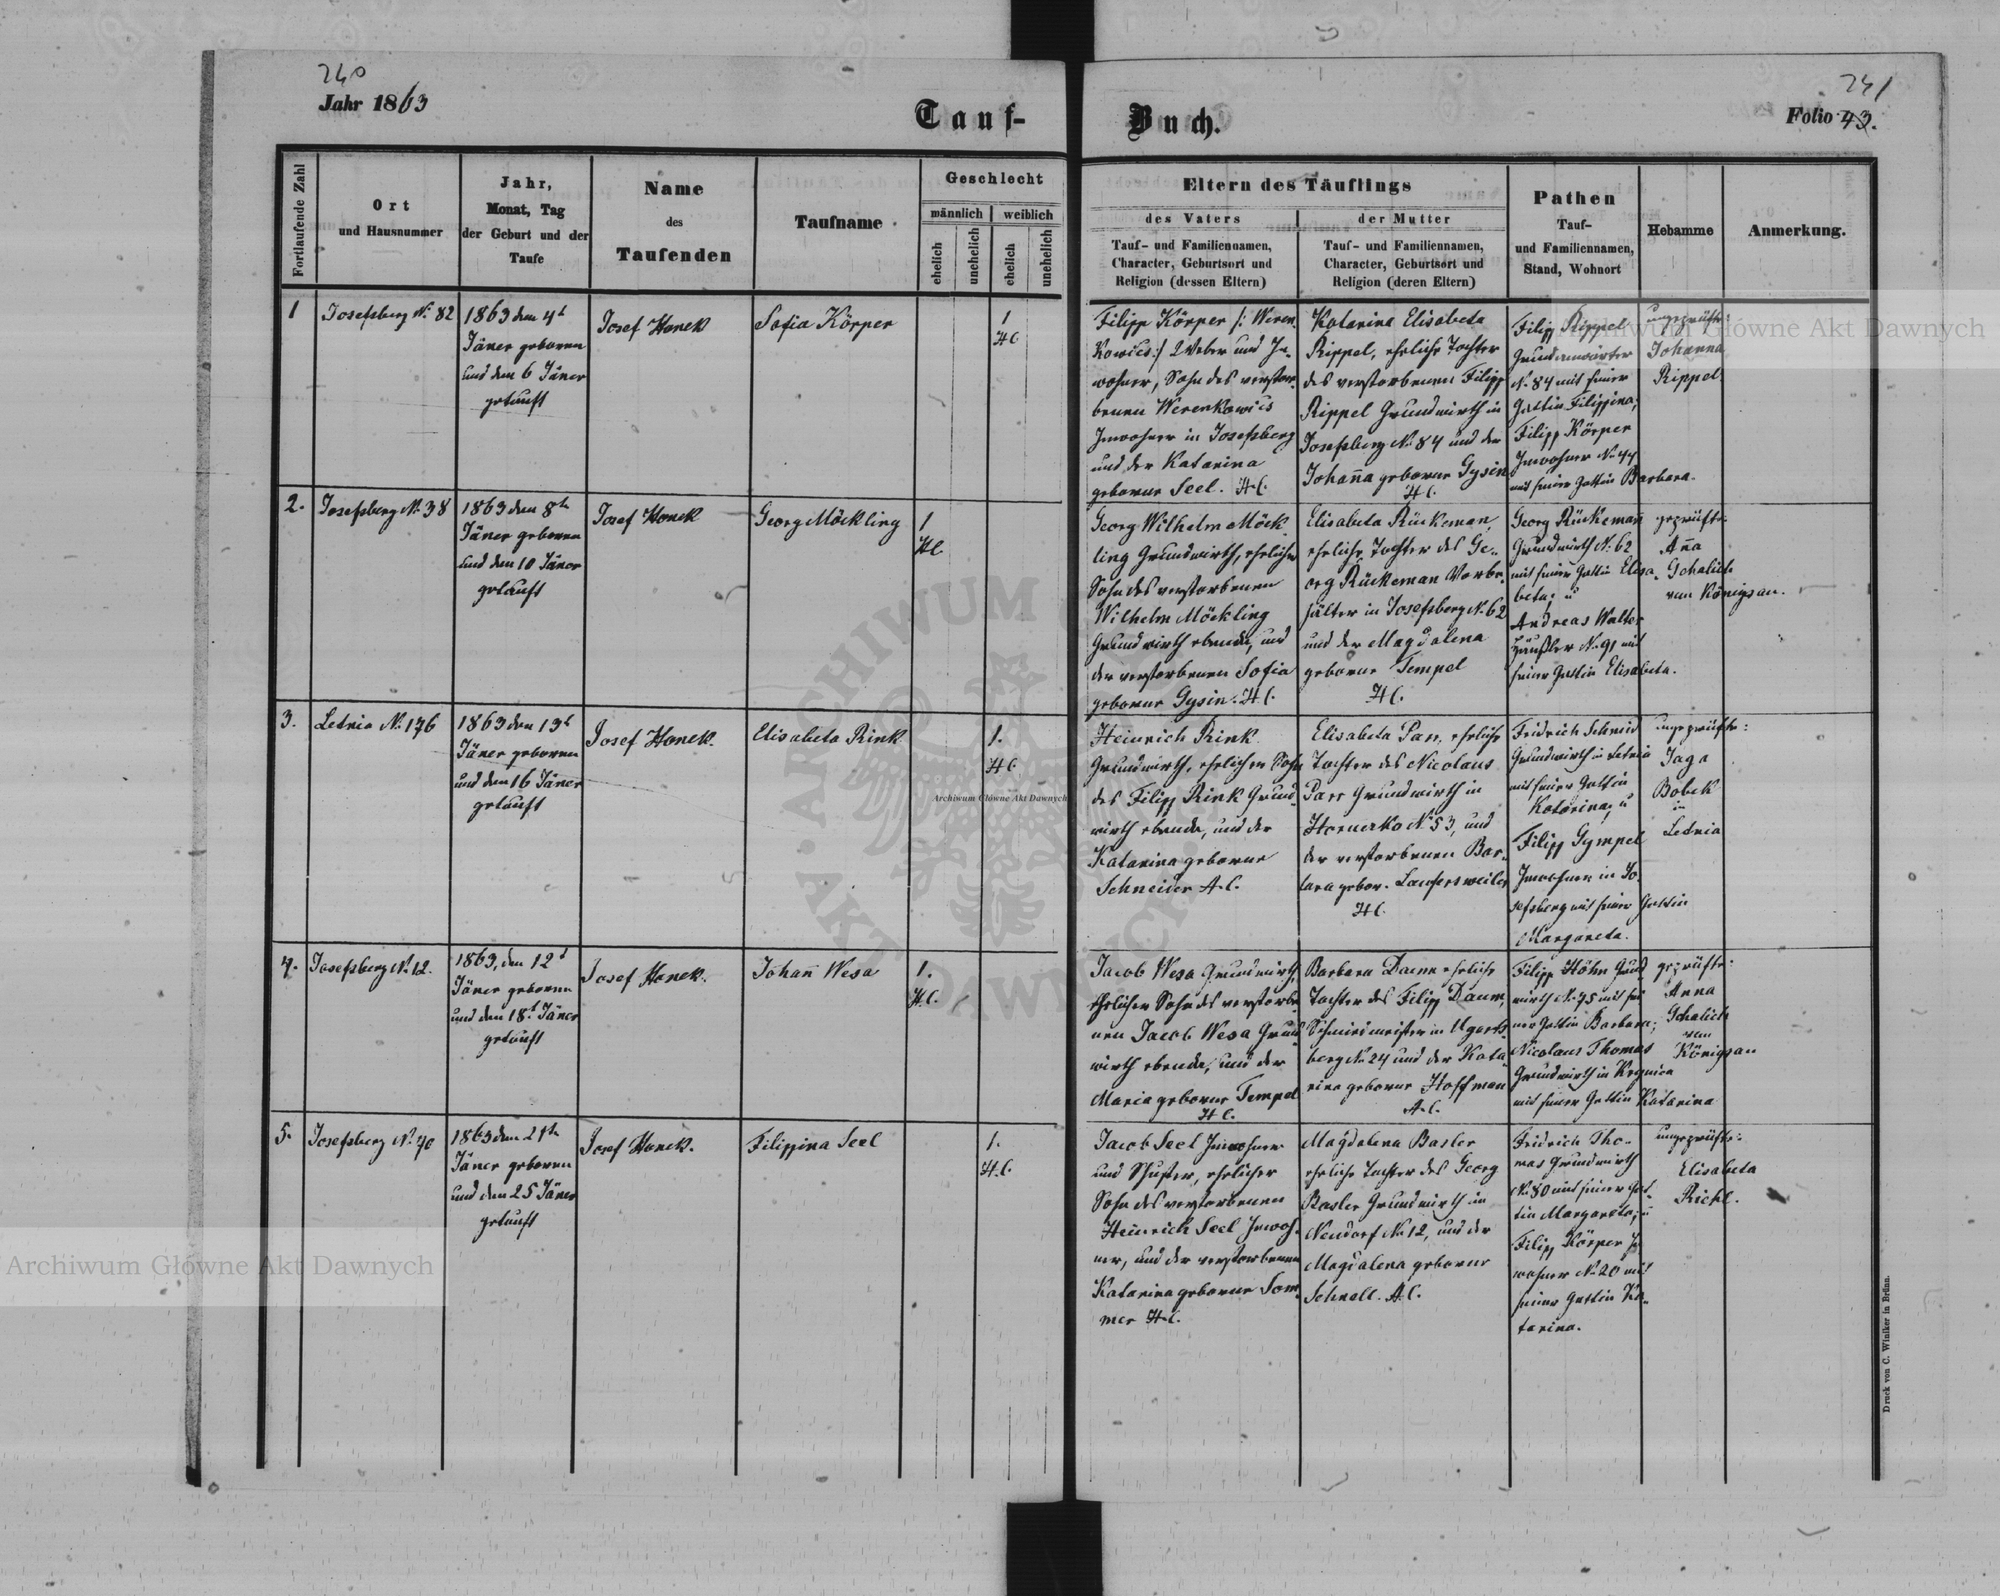 240
Jahr 1863
Tauf-
Buch.
241
Folio 43.
Fortlaufende Zahl
Ort
und Hausnummer
Jahr,
Monat, Tag
der Geburt und der
Taufe
Name
des
Taufenden
Taufname
Geschlecht
männlich
weiblich
ehelich
unehelich
ehelich
unehelich
Eltern des Täuflings
des Vaters
Tauf- und Familiennamen,
Character, Geburtsort und
Religion (dessen Eltern)
der Mutter
Tauf- und Familiennamen,
Character, Geburtsort und
Religion (deren Eltern)
Pathen
Tauf-
und Familiennamen,
Stand, Wohnort
Hebamme
Anmerkung.
1
Josefsberg N. 82
1863 den 4t
Jäner geboren
und dem 6 Jäner
getauft
Josef Hanek
Sofia Körper
1
HC
Filipp Körper /: Weren,
kowics :/ Weber und In,
wohner, Sohn des verstor,
benen Werenkowics
Inwohner in Josefsberg
und der Katarina
geborne Seel. HC.
Katarina Elisabeta
Rippel, ehrliche Tochter
des verstorbenen Filipp
Rippel Grundwirth in
Josefsberg N. 84 und der
Johanna geborne Gysin
HC.
Filipp Rippel
N. 84 mit seiner
Gattin Filippina;
Filipp Körper
Inwohner N. 44
mit seiner Gattin Barbara.
ungeprüfte:
Johanna
Rippel.
2.
Josefsberg N. 38
1863 den 8th
Jäner geboren
und den 10 Jäner
getauft
Josef Hanek
Georg Möckling
1
HC
Georg Wilhelm Möck,
ling Grundwirth, ehrlicher
Sohn des verstorbenen
Wilhelm Möckling
Grundwirth ebenda, und
der verstorbenen Sofia
geborne Gysin. HC.
Elisabeta Rückeman,
ehrliche Tochter des Ge-
org Rückeman Vorbe,
hälter in Josefsberg N. 62
und der Magdalena
geborne Tempel
HC.
Georg Rückemann
Grundwirth N. 62
mit seiner Gattin Elisa,
beta; u
Andreas Walter
Häußler N. 91 mit
seiner Gattin Elisabeta.
geprüfte:
Anna
Schalich
von Königsau.
3.
Letnia N. 176
1863 den 13t
Jäner geboren
und den 16 Jäner
getauft
Josef Hanek.
Elisabeta Rink
1.
HC
Heinrich Rink
Grundwirth, ehrlicher Sohn
des Filipp Rink Grund,
wirth ebenda, und der
Katarina geborne
Schneider A.C.
Elisabeta Parr, ehrliche
Tochter des Nicolaus
Parr Grundwirth in
N. 53, und
der verstorbenen Bar,
bara gebor. Laufersweiler
HC.
Fridrich Schmid
Grundwirth in Letnia
mit seiner Gattin
Katarina; u
Filipp Gympel
Inwohner in Jo,
sefsberg mit seiner Gattin
Margareta.
ungeprüfte:
Jaga
Bobek
in
Letnia
4.
Josefsberg N. 12.
1863, den 12t
Jäner geboren
und den 18t Jäner
getauft
Josef Hanek.
Johann Wesa
1.
HC.
Jacob Wesa Grundwirth,
ehrlicher Sohn des verstorbe,
nen Jacob Wesa Grund
wirth ebenda, und der
Maria geborne Tempel
HC.
Barbara Daum ehrliche
Tochter des Filipp Daum,
Schmiedmeister in Ugarts,
berg N. 24 und der Kata,
rina geborne Hoffman
A.C.
Filipp Höhn Grund,
wirth N. 75 mit sei
ner Gattin Barbara;
Nicolaus Thomas
Grundwirth in
mit seiner Gattin Katarina
geprüfte:
Anna
Schalich
von
Königsau
5.
Josefsberg N. 70
1863 den 21th
Jäner geboren
und den 25 Jäner
getauft
Josef Hanek.
Filippina Seel
1.
HC.
Jacob Seel Inwohner
und Schuster, ehrlicher
Sohn des verstorbenen
Heinrich Seel Inwoh,
ner, und der verstorbenen
Katarina geborne Som,
mer HC.
Magdalena Basler
ehrliche Tochter des Georg
Basler Grundwirth in
Neudorf N. 12, und der
Magdalena geborne
Schnell. A.C.
Fridrich Tho-
mas Grundwirth
N. 80 mit seiner Gat,
tin Margareta; u
Filipp Körper In
wohner N. 20 mit
seiner Gattin Ka-
tarina.
ungeprüfte:
Elisabeta
Richl.
Druck von C. Winiker in Brünn.
Archiwum Główne Akt Dawnych
Archiwum Główne Akt Dawnych
Archiwum Główne Akt Dawnych
ARCHIWUM GŁÓWNE AKT DAWNYCH